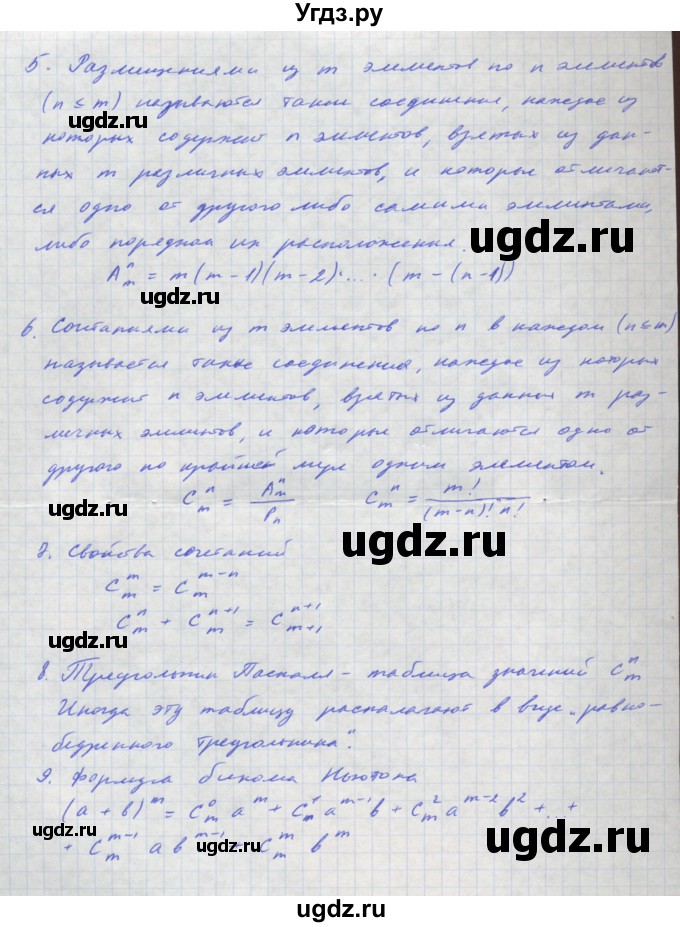 Угдз.ру
5. Размещениями из m элементов по n элементов
(n ≤ m) называются такие соединения, каждое из
которых содержит n элементов, взятых из дан-
ных m различных элементов, и которые отличают-
ся одно от другого либо самими элементами,
либо порядком их расположения.
A_m^n = m(m-1)(m-2)·...·(m-(n-1))
6. Сочетаниями из m элементов по n в каждом (n ≤ m)
называется такие соединения, каждое из которых
содержит n элементов, взятых из данных m раз-
личных элементов, и которые отличаются одно от
другого по крайней мере одним элементом.
C_m^n = A_m^n / P_n   C_m^n = m! / (m-n)! n! .
7. Свойства сочетаний
C_m^m = C_m^{m-n}
C_m^n + C_m^{n+1} = C_{m+1}^{n+1}
8. Треугольник Паскаля - таблица значений C_m^n
Иногда эту таблицу располагают в виде „равно-
бедренного треугольника".
9. Формула бинома Ньютона
(a+b)^m = C_m^0 a^m + C_m^1 a^{m-1} b + C_m^2 a^{m-2} b^2 + ... +
+ C_m^{m-1} a b^{m-1} + C_m^m b^m
ugdz.ru
ugdz.ru
ugdz.ru
ugdz.ru
ugdz.ru
ugdz.ru
ugdz.ru
ugdz.ru
ugdz.ru
ugdz.ru
ugdz.ru